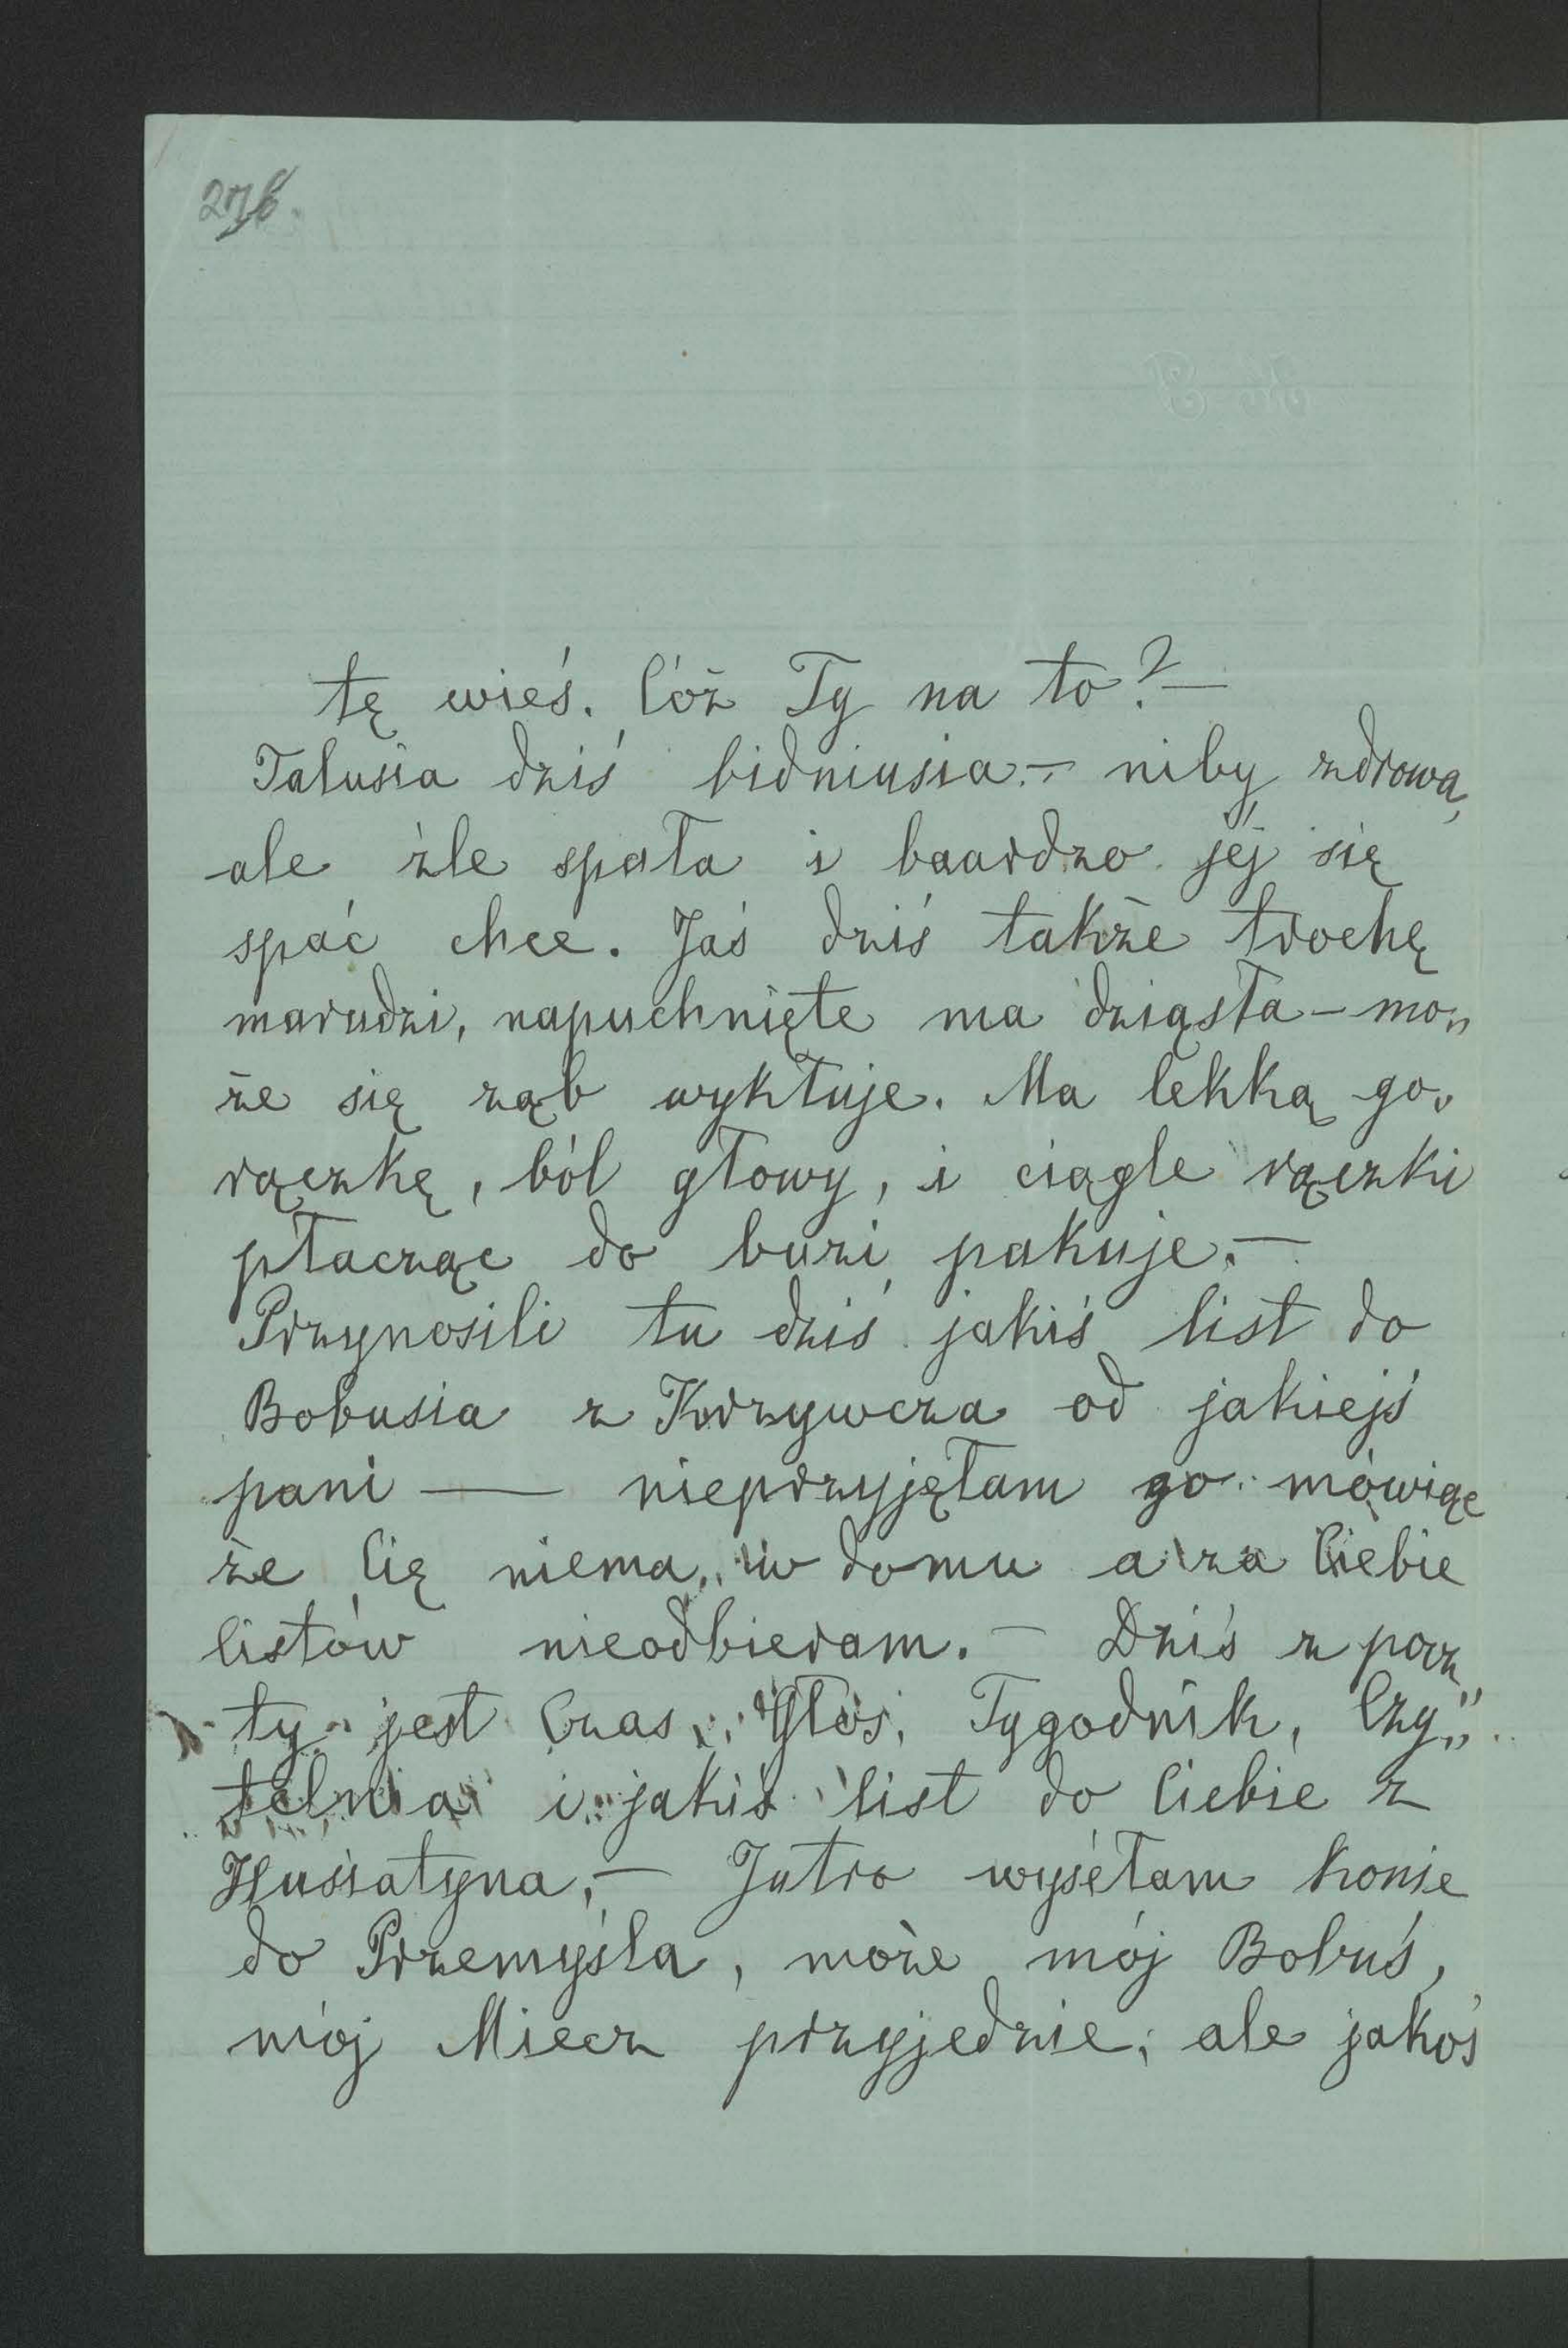 276.
tę wieś. Cóż Ty na to? —
Talusia dziś bidniusia. — niby zdrowa,
ale źle spała i baardzo jéj się
spać chce. Jaś dziś także trochę
marudzi, napuchnięte ma dziąsła — mo„
że się ząb wykłuje. Ma lekką go„
rączkę, ból głowy, i ciągle rączki
płacząc do buzi pakuje. —
Przynosili tu dziś jakiś list do
Bobusia z Krzywcza od jakiejś
pani — nieprzyjęłam go mówiąc
że Cię niema, w domu a za Ciebie
listów nieodbieram. — Dziś z pocz
ty jest Czas, Głos, Tygodnik, Czy„
telnia i jakiś list do Ciebie z
Husiatyna, — Jutro wyséłam konie
do Przemyśla, może mój Bobuś,
mój Miecz przyjedzie, ale jakoś